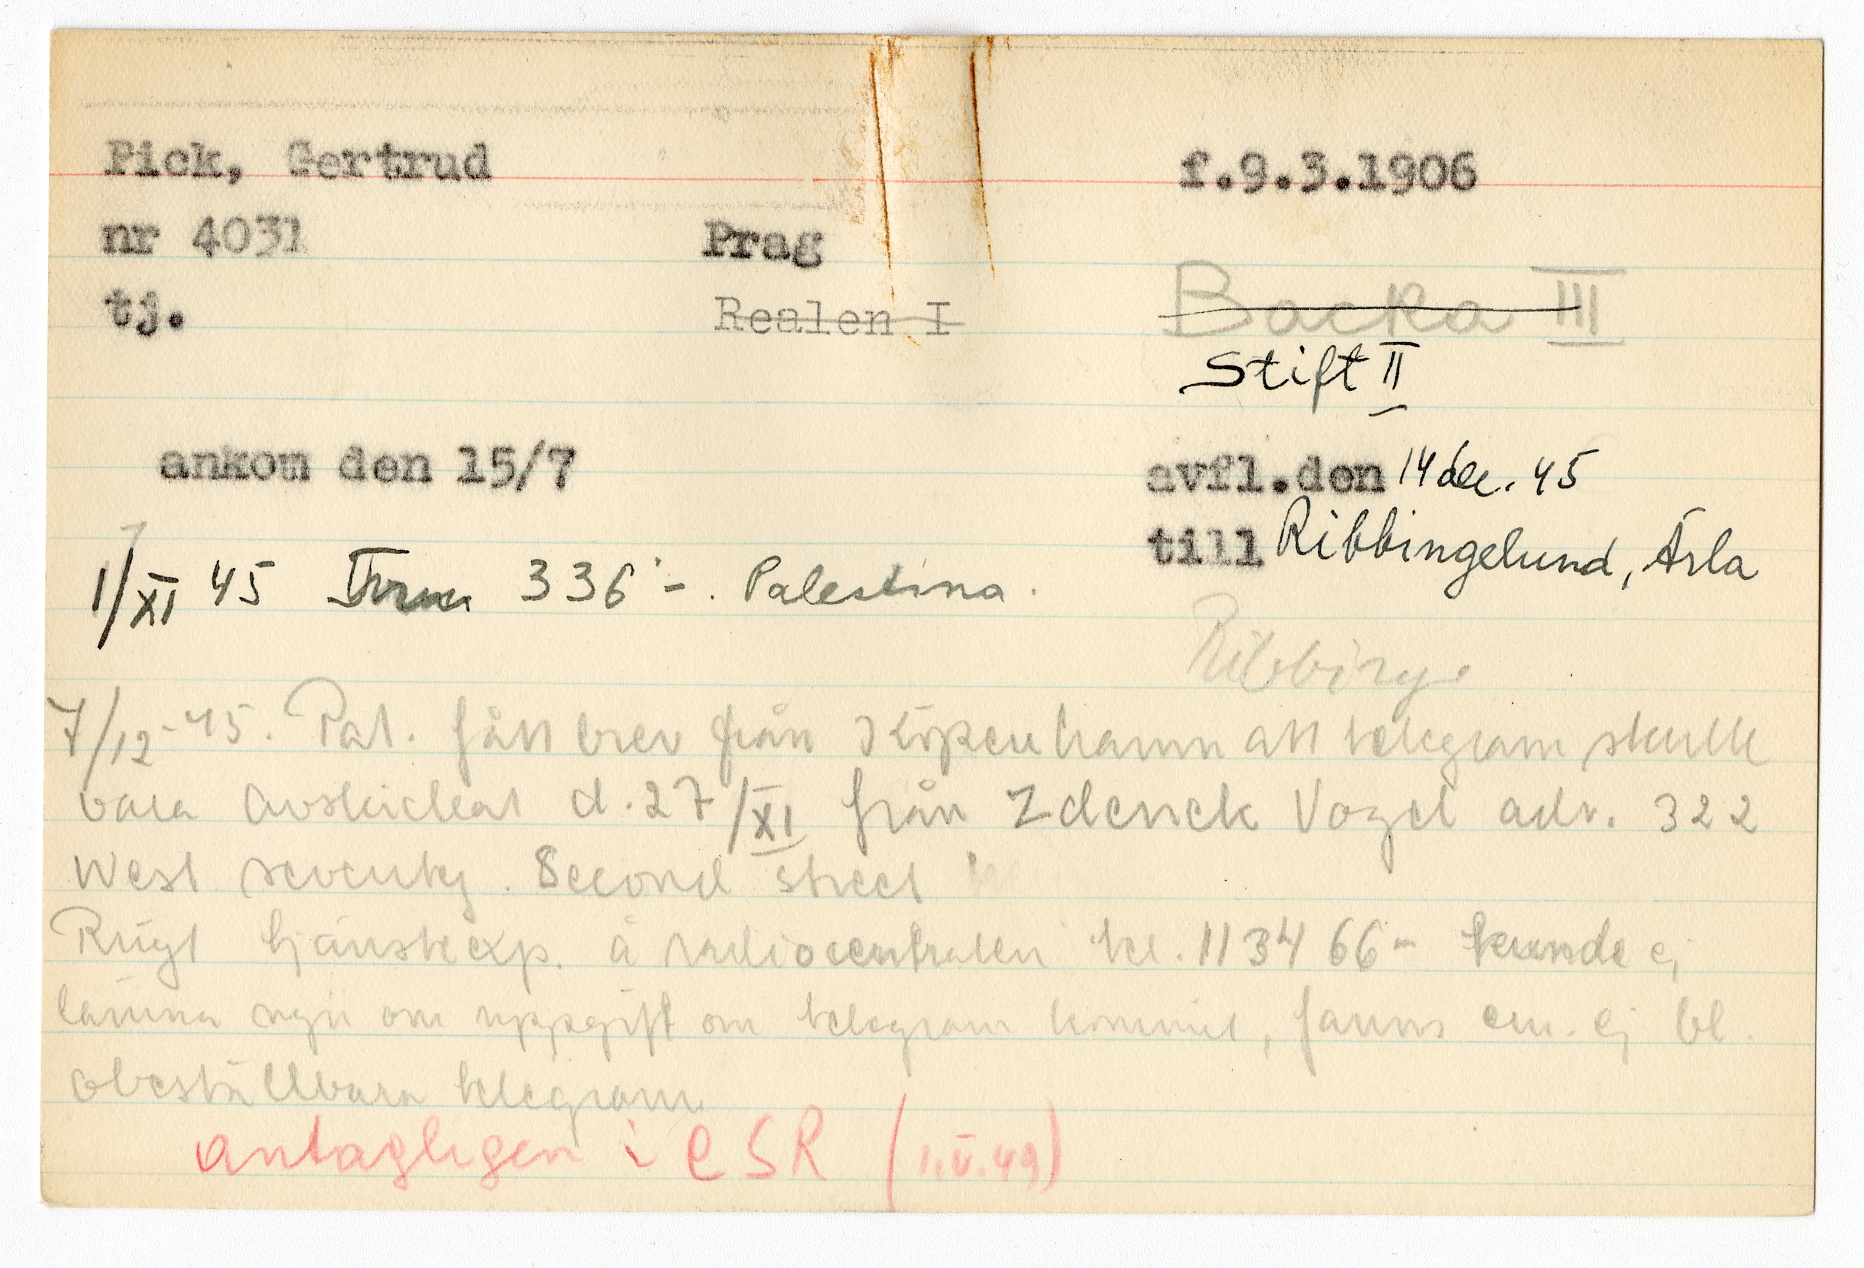 Pick, Gertrud f.9.3.1906
nr 4031 Prag
tj. Realen I Backa III
Stift II
ankom den 15/7 avfl.den 14 dec. 45
till Ribbingelund, Ärla
1/XI 45 336:-. Palestina.
Ribbinge
7/12-45. Pat. fått brev från Köpenhamn att telegram skulle
vara avskickat d. 27/XI från Zdenek Vogel adr. 322
West seventy. Second street
Ringt tjänsteexp. å radiocentralen tel. 113466- kunde ej
lämna om uppgift om telegram kommit, fanns em. ej bl.
obeställbara telegram
antagligen i CSR (1.V.49)